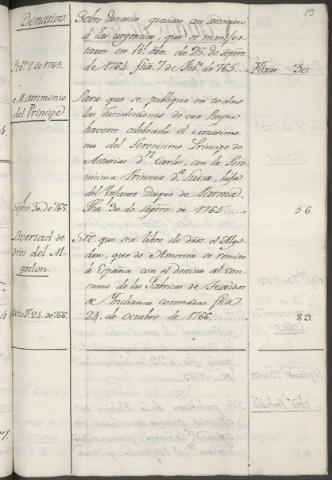 19
Donativo.
Sobre donativo gracioso con atencion
á las urgencias, que se manifes-
taron en Rl. Orn. de 25 de Septre.
Febº. 7. de 1765.
de 1764. fha. 7. de Febº. de 765.
30.
Matrimonio
del Principe
Para que se publique en todas
las Jurisdicciones de este Reyno
haverse celebrado el Matrimo-
nio del Serenisimo Principe de
Asturias Dn. Carlos, con la Sere-
nisima Princesa Dª. Luisa, hija
del Infante Duque de Parma.
Septre. 30. de 765.
Fha. 30. de Septre. de 1765.
56.
Livertad de
dros del Al-
godon.
Sre. que sea libre de dros. el Algo-
don, que de America se remita
á España con el destino al con-
sumo de las Fabricas de Texidos
de Yndianas coronadas fha.
24. de 766.
24. de Octubre de 1766.
89.